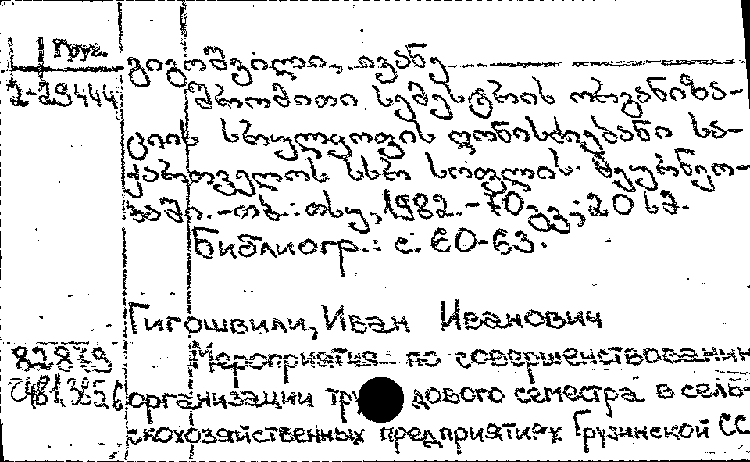 Груз.
გიგოშვილი, ივანე
2-29444 შრომითი სემესტრის ორგანიზა-
ციის სრულყოფის ღონისძიებანი სა-
ქართველოს სსრ სოფლის მეურნეო-
ბაში.-თბ.:თსუ,1982.-70გვ;20სმ.
Библиогр.: с. 60-63.
Гигошвили, Иван Иванович
82839 Мероприятия по совершенствованию
организации трудового семестра в сель-
скохозяйственных предприятиях Грузинской СС